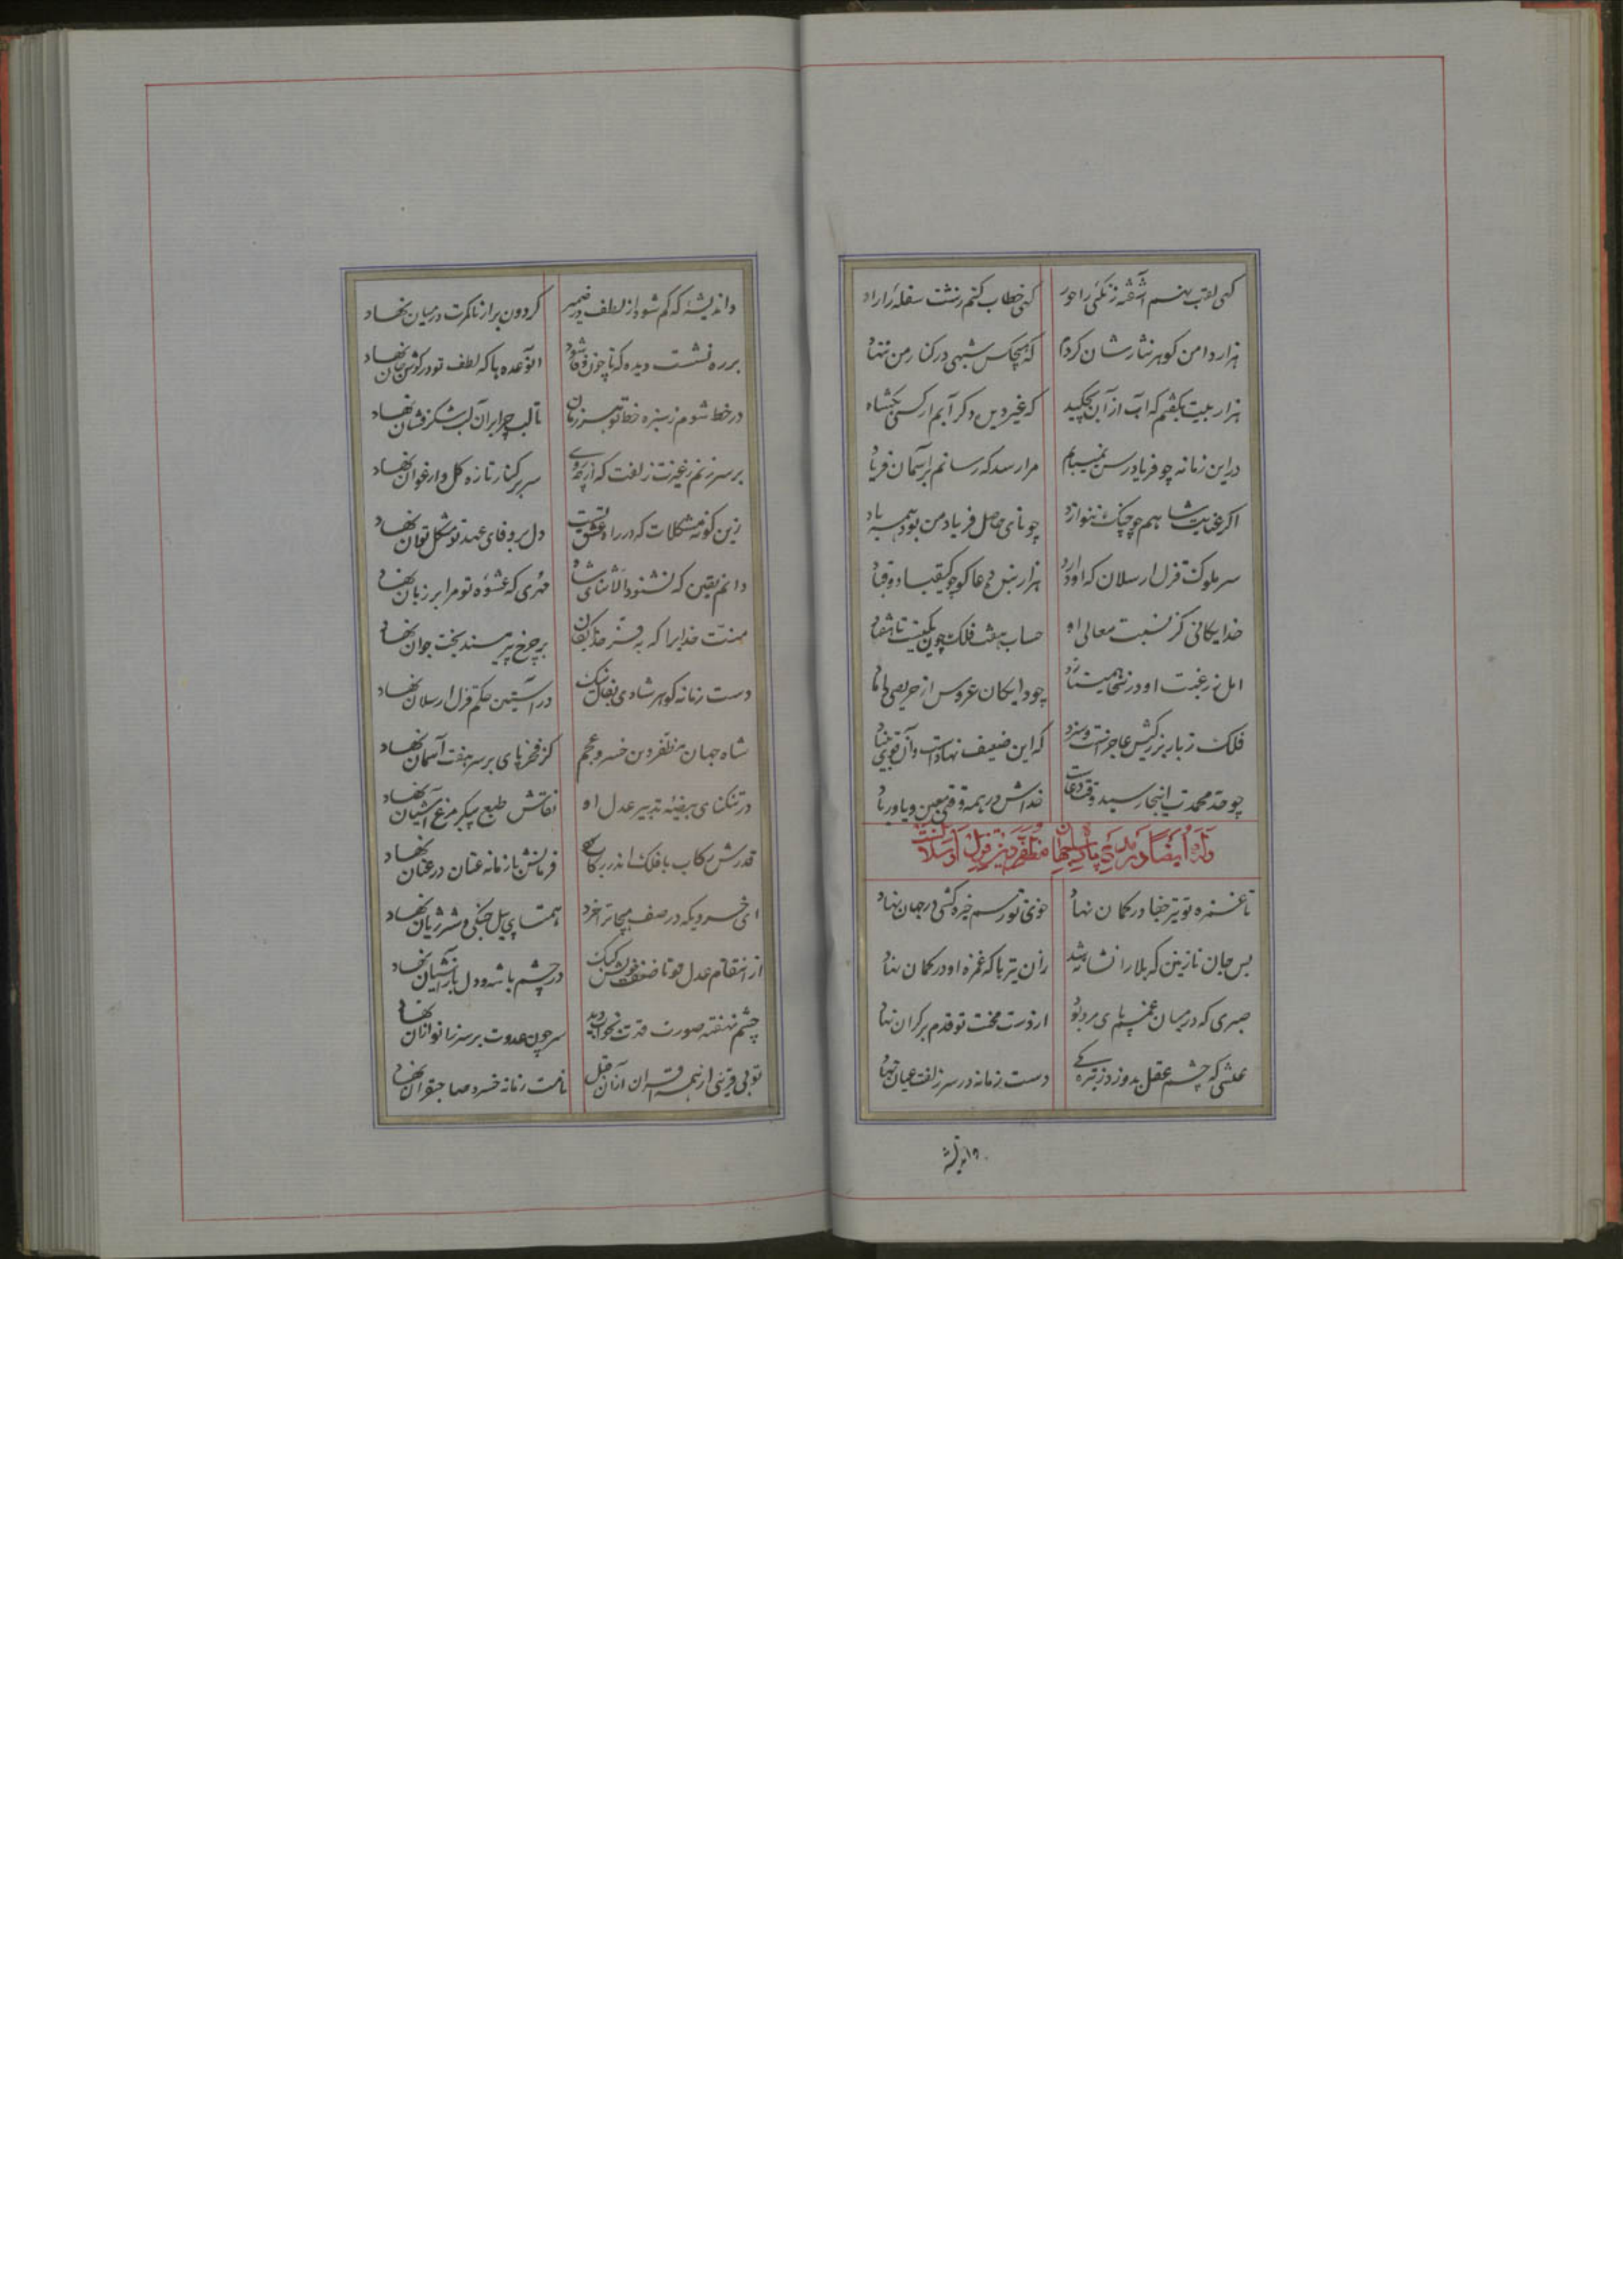 کهی لقب نهم آشفته زنگئی را حور کهی خطاب کنم مست سفله‌ٔ را راد
هزار دامن گوهر نثارشان کردم که هیچکس شبهی در کنار من ننهاد
هزار بیت بگفتم که آب از آن بچکید که غیر دیده دگر آبم از کسی نگشاد
در این زمانه چو فریادرس نمییابم مرا رسد که رسانم بر آسمان فریاد
اگر عنایت شاهم چو چنگ ننوازد چو نای حاصل فریاد من بود همه باد
سر ملوک قزل ارسلان که او دارد هزار بنده چو کیقباد و قباد
خدایگانی کز نسبت معالی او حساب هفت فلک چون یکیست تا هفتاد
امل ز رغبت او در سخا همیشه زند چو دایگان عروس از حریصی داماد
فلک زبار بزرگیش عاجزست و سزد که این ضعیف نهادست و آن قوی بنیاد
چو حد محمدت اینجا رسید وقت دعاست خداش در همه وقتی معین و یاور باد
وله ایضاً در مدح پادشاه جهان مظفرالدین قزل ارسلان
تا غمزه تو تیر جفا در کمان نهاد خوی تو رسم خیره‌کشی در جهان نهاد
بس جان نازنین که بلا را نشانه شد زان تیرها که غمزه او در کمان نهاد
صبری که در میان غم پای مرد بود از دست محنت تو قدم بر کران نهاد
عشقی که چشم عقل بدوزد ز تیرگی دست زمانه در سر زلفت عیان نهاد
واندیشه
واندیشهٔ که گم شود از لطف در ضمیر گردون براز با کمرت در میان نهاد
بر ره نشست دیده که تا چون وفا شود آن وعده‌ها که لطف تو در گوش جان نهاد
در خط شوم ز سبزه خط تو هر زمان تا لب چرا بر آن لب شکرفشان نهاد
بر سر زنم ز غیرت زلفت که از چه روی سر بر کنار تازه گل و ارغوان نهاد
زین گونه مشکلات که در راه عشق تست دل بر وفای عهد تو مشکل توان نهاد
دانم یقین که نشنود الا ثنای شاه مهری که عشوه تو مرا بر زبان نهاد
منت خدایرا که به فر خدایگان بر چرخ پیر مسند بخت جوان نهاد
دست زمانه گوهر شادی بفال نیک در آستین حکم قزل ارسلان نهاد
شاه جهان مظفر دین خسرو عجم کز فخر پای بر سر هفت آسمان نهاد
در تنگنای بیضه تدبیر عدل او نقاش طبع پیکر مرغ آشیان نهاد
قدرش رکاب با فلک اندر رکاب فرمانش با زمانه عنان در عنان نهاد
ای خسرویکه در صف هیجا ترا خرد همتای پیل جنگی و شیر ژیان نهاد
از انتقام عدل تو تا ضعف خویش کبک در چشم باشه و دل باز آشیان نهاد
چشم نهفته صورت قدرت بخواب دید سر چون عدوت بر سر زانو از آن نهاد
تو بی قرینی از همه اقران از آن قبل نامت زمانه خسرو صاحبقران نهاد